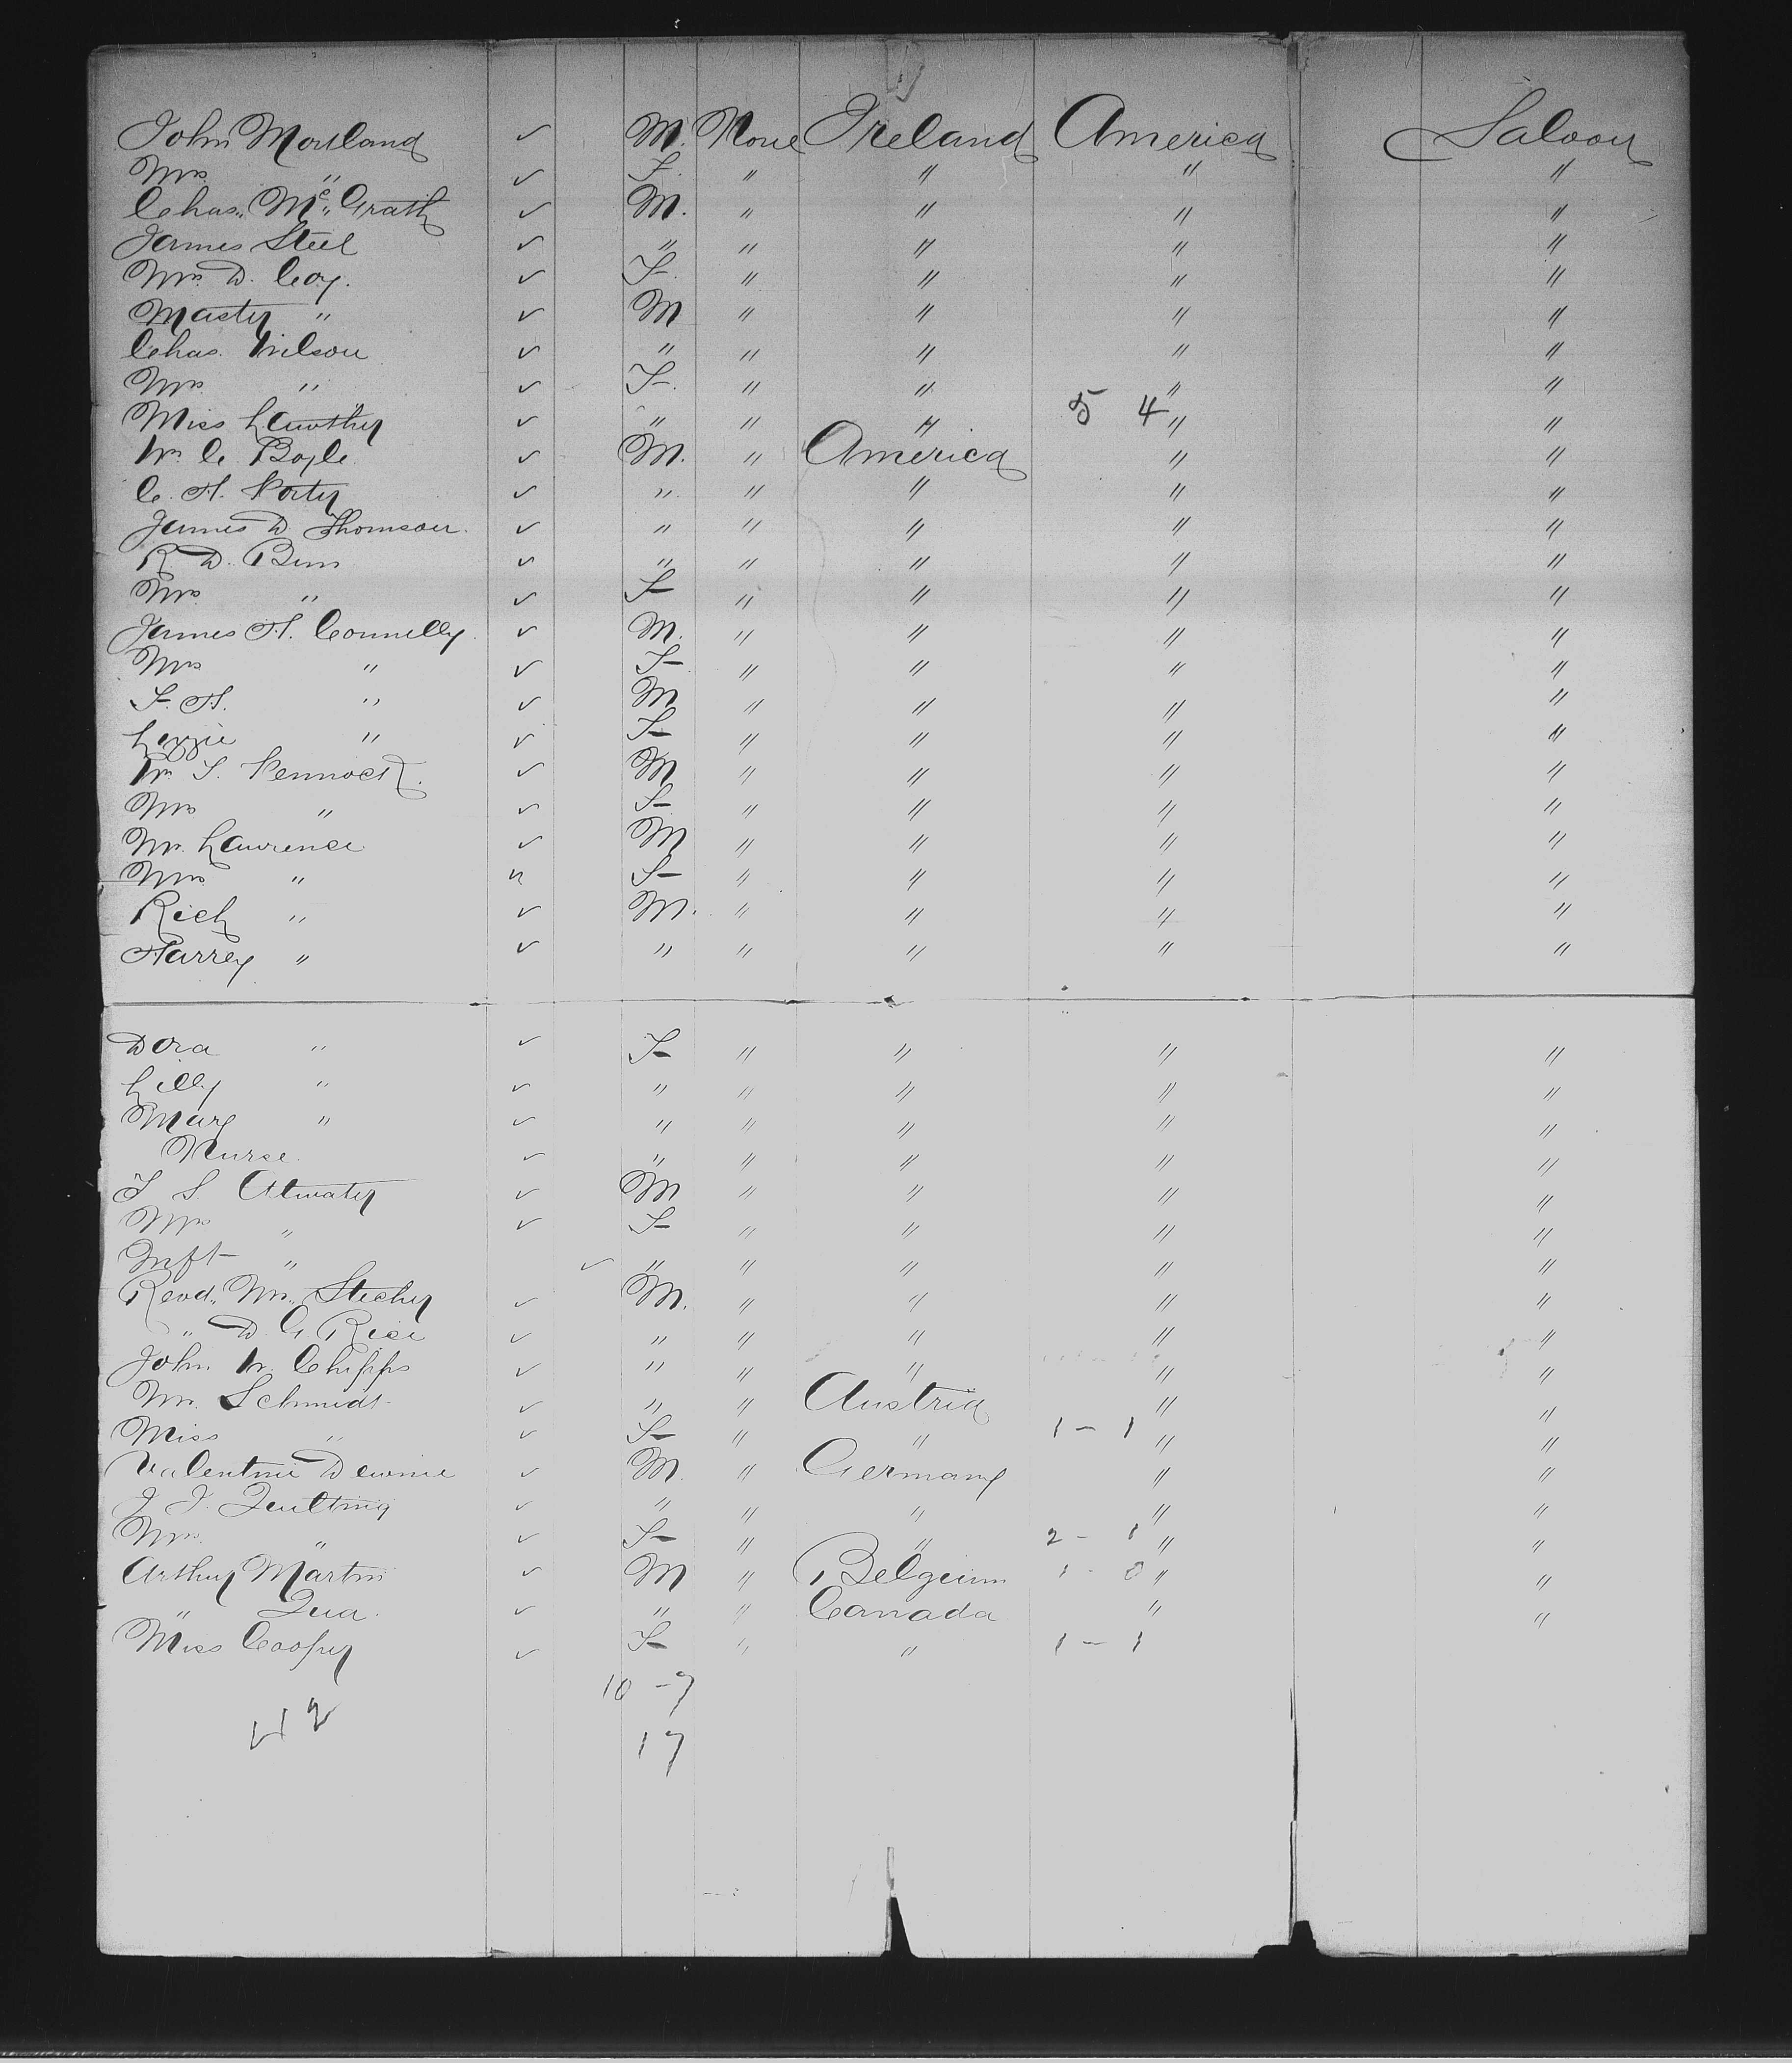 John Morland ✓ M. None Ireland America Saloon
Mrs " ✓ F. " " " "
Chas. McGrath ✓ M. " " " "
James Steel ✓ " " " " "
Mrs D. Coy. ✓ F. " " " "
Master " ✓ M " " " "
Chas. Wilson ✓ " " " " "
Mrs " ✓ F. " " " "
Miss Lawther ✓ " " " 5 4 " "
Wm C Boyle ✓ M. " America " "
C. H. Porter ✓ " " " " "
James D. Thomson. ✓ " " " " "
R D. ✓ " " " " "
Mrs " ✓ F " " " "
James H. Connelly ✓ M. " " " "
Mrs " ✓ F " " " "
F. H. " ✓ M " " " "
Lizzie " ✓ F " " " "
Wm S. Pennock. ✓ M " " " "
Mrs " ✓ F " " " "
Mr. Lawrence ✓ M " " " "
Mrs " F " " " "
Rich " ✓ M. " " " "
Harrey " ✓ " " " " "
Dora " ✓ F " " " "
Lilly " ✓ " " " " "
Mary " ✓ " " " " "
Nurse. ✓ " " " " "
F S. Atwater ✓ M " " " "
Mrs " ✓ F " " " "
Inft " ✓ " " " " "
Revd. Wm. Stecher ✓ M. " " " "
" D G. Rice ✓ " " " " "
John W. Chipps ✓ " " " " "
Mr. Schmidt ✓ " " Austria " "
Miss " ✓ F " " 1 - 1 " "
Valentine ✓ M. " Germany " "
J. J. ✓ " " " " "
Mrs. " ✓ F " " 2 - 1 " "
Arthur Martin ✓ M " Belgium 1 - 0 " "
" Qua. ✓ " " Canada " "
Miss Cooper ✓ F " " 1 - 1
10 - 7
42
17